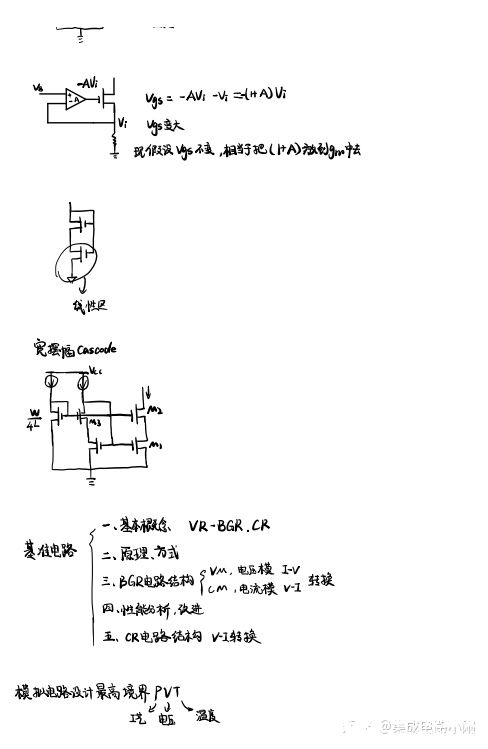 -AVi
Vb
Vgs = -AVi - Vi = -(1+A)Vi
-A
Vi
Vgs变大
现假设Vgs不变,相当于把(1+A)放到gm中去
线性区
宽摆幅Cascode
Vcc
W/4L
M3
M2
M1
基准电路
一、基本概念 VR-BGR.CR
二、原理、方式
三、BGR电路结构 VM,电压模 I-V 转换
CM,电流模 V-I
四、性能分析,改进
五、CR电路结构 V-I转换
模拟电路设计最高境界PVT
工艺 电压 温度
@集成电路小